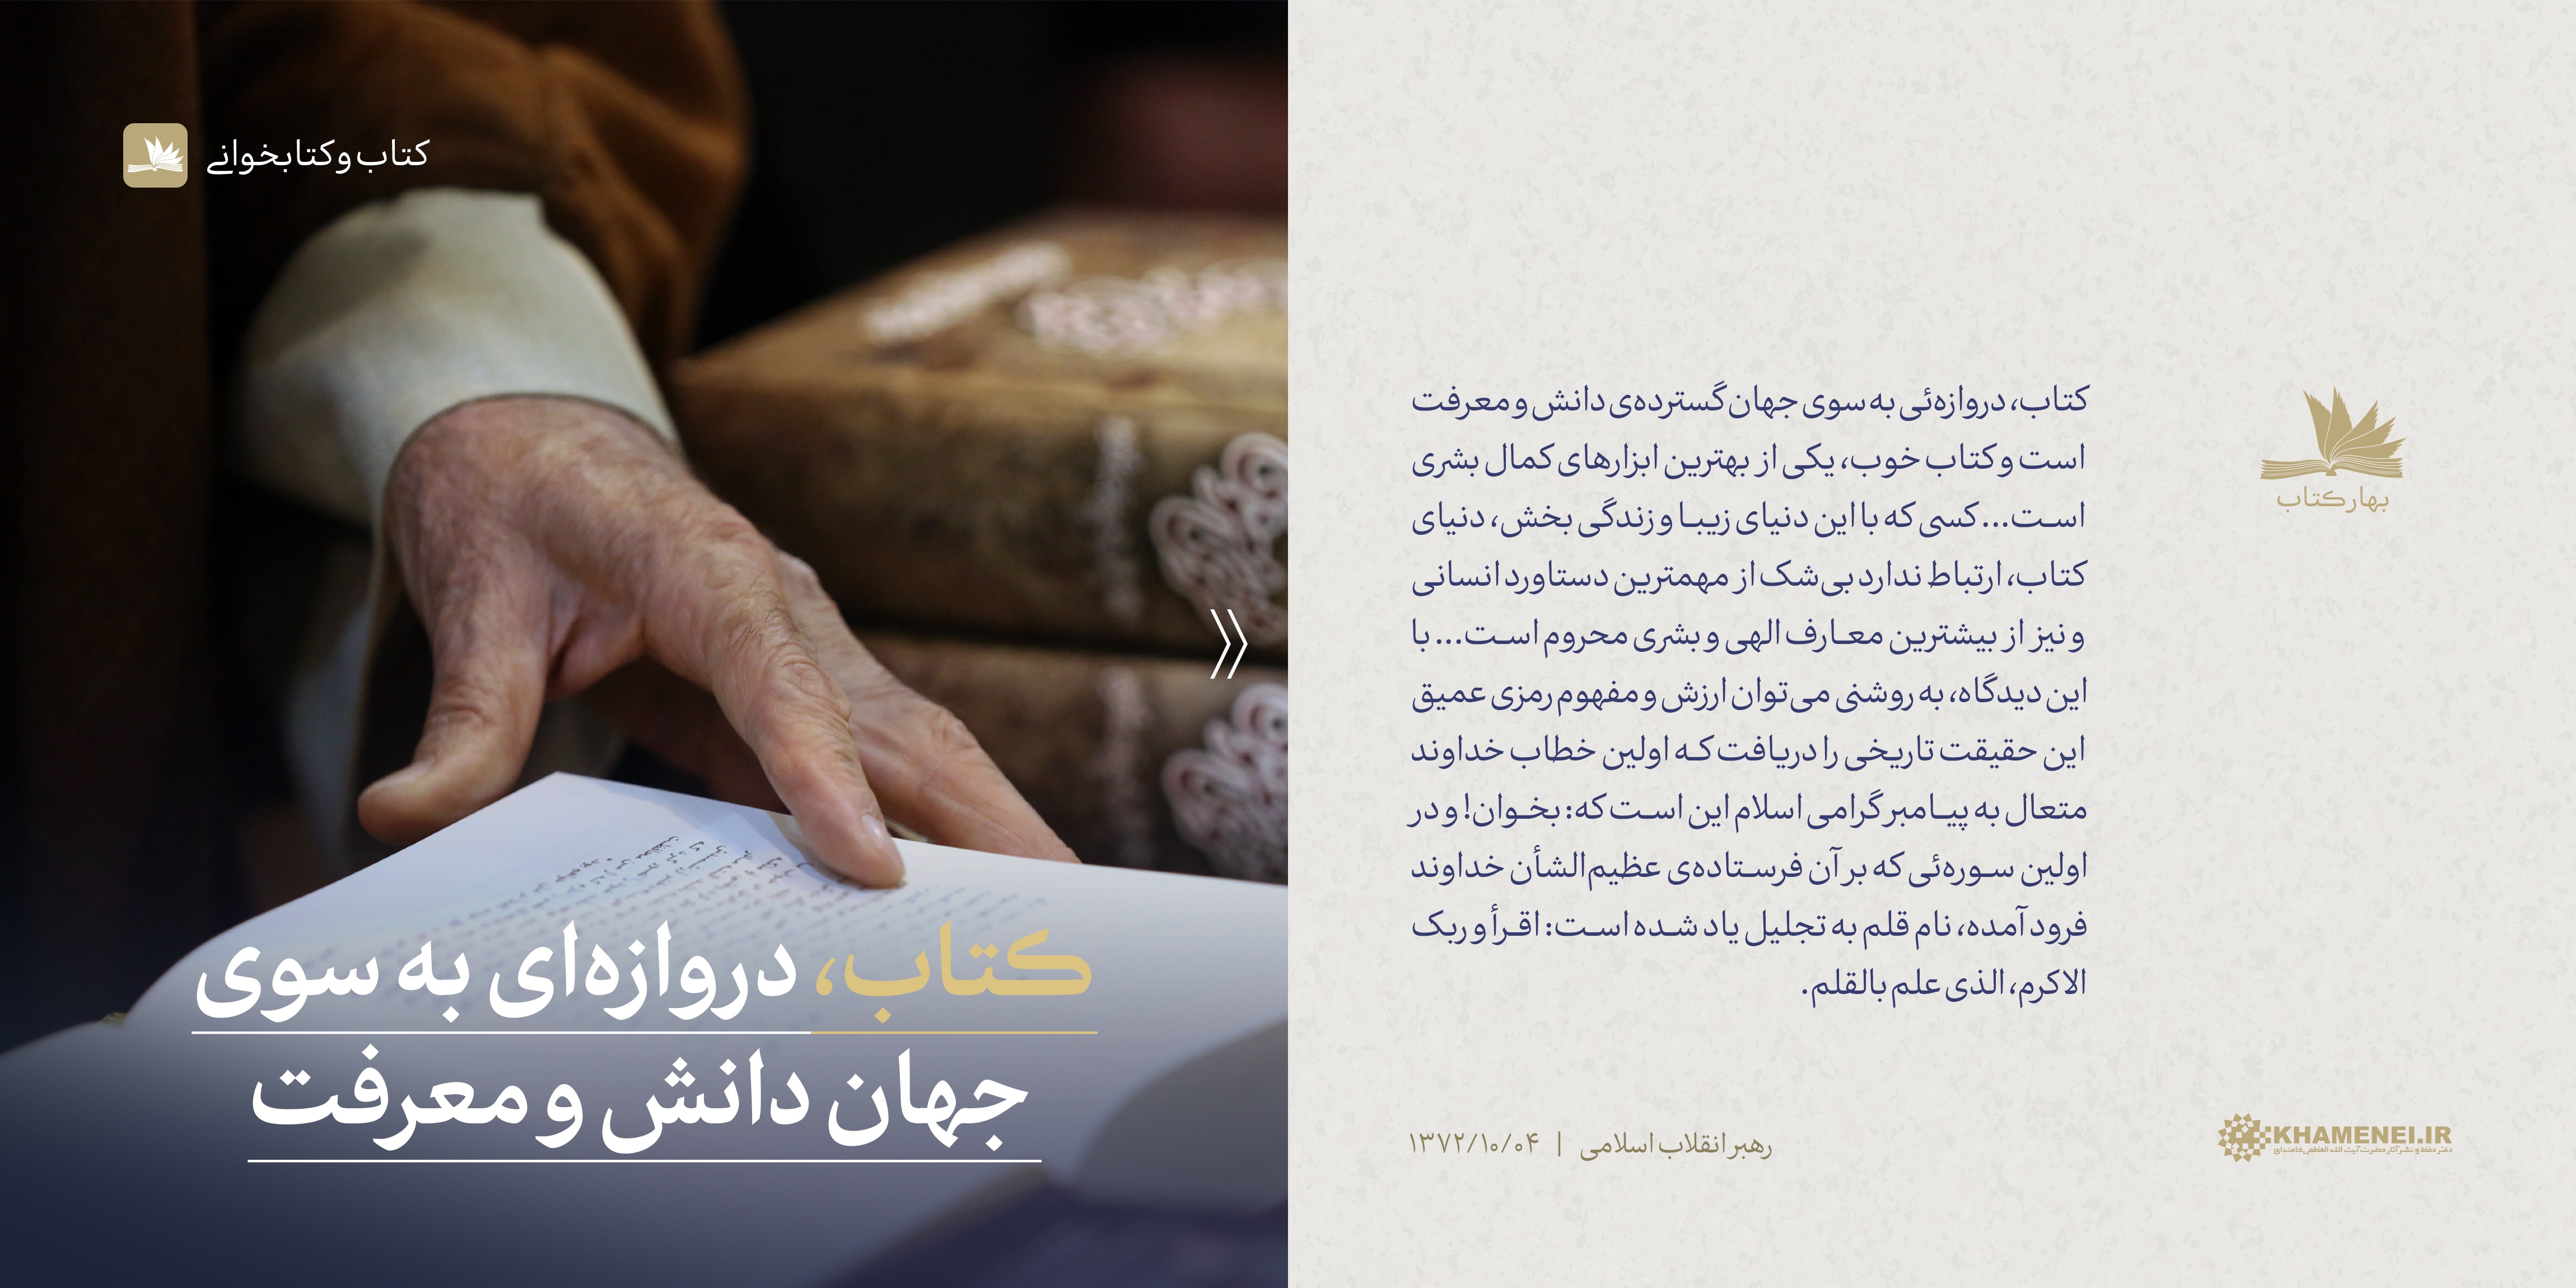 کتاب و کتابخوانے
کتاب، دروازه‌ای به سوی
جهان دانش و معرفت
کتاب، دروازه‌ئی به سوی جهان گسترده‌ی دانش و معرفت
است و کتاب خوب، یکی از بهترین ابزارهای کمال بشری
است... کسی که با این دنیای زیبا و زندگی بخش، دنیای
کتاب، ارتباط ندارد بی‌شک از مهمترین دستاورد انسانی
و نیز از بیشترین معارف الهی و بشری محروم است... با
این دیدگاه، به روشنی می‌توان ارزش و مفهوم رمزی عمیق
این حقیقت تاریخی را دریافت که اولین خطاب خداوند
متعال به پیامبر گرامی اسلام این است که: بخوان! و در
اولین سوره‌ئی که بر آن فرستاده‌ی عظیم‌الشأن خداوند
فرود آمده، نام قلم به تجلیل یاد شده است: اقرأ و ربک
الاکرم، الذی علم بالقلم.
بهار کتاب
رهبر انقلاب اسلامی | ۱۳۷۲/۱۰/۰۴
KHAMENEI.IR
دفتر حفظ و نشر آثار حضرت آیت الله العظمی خامنه‌ای